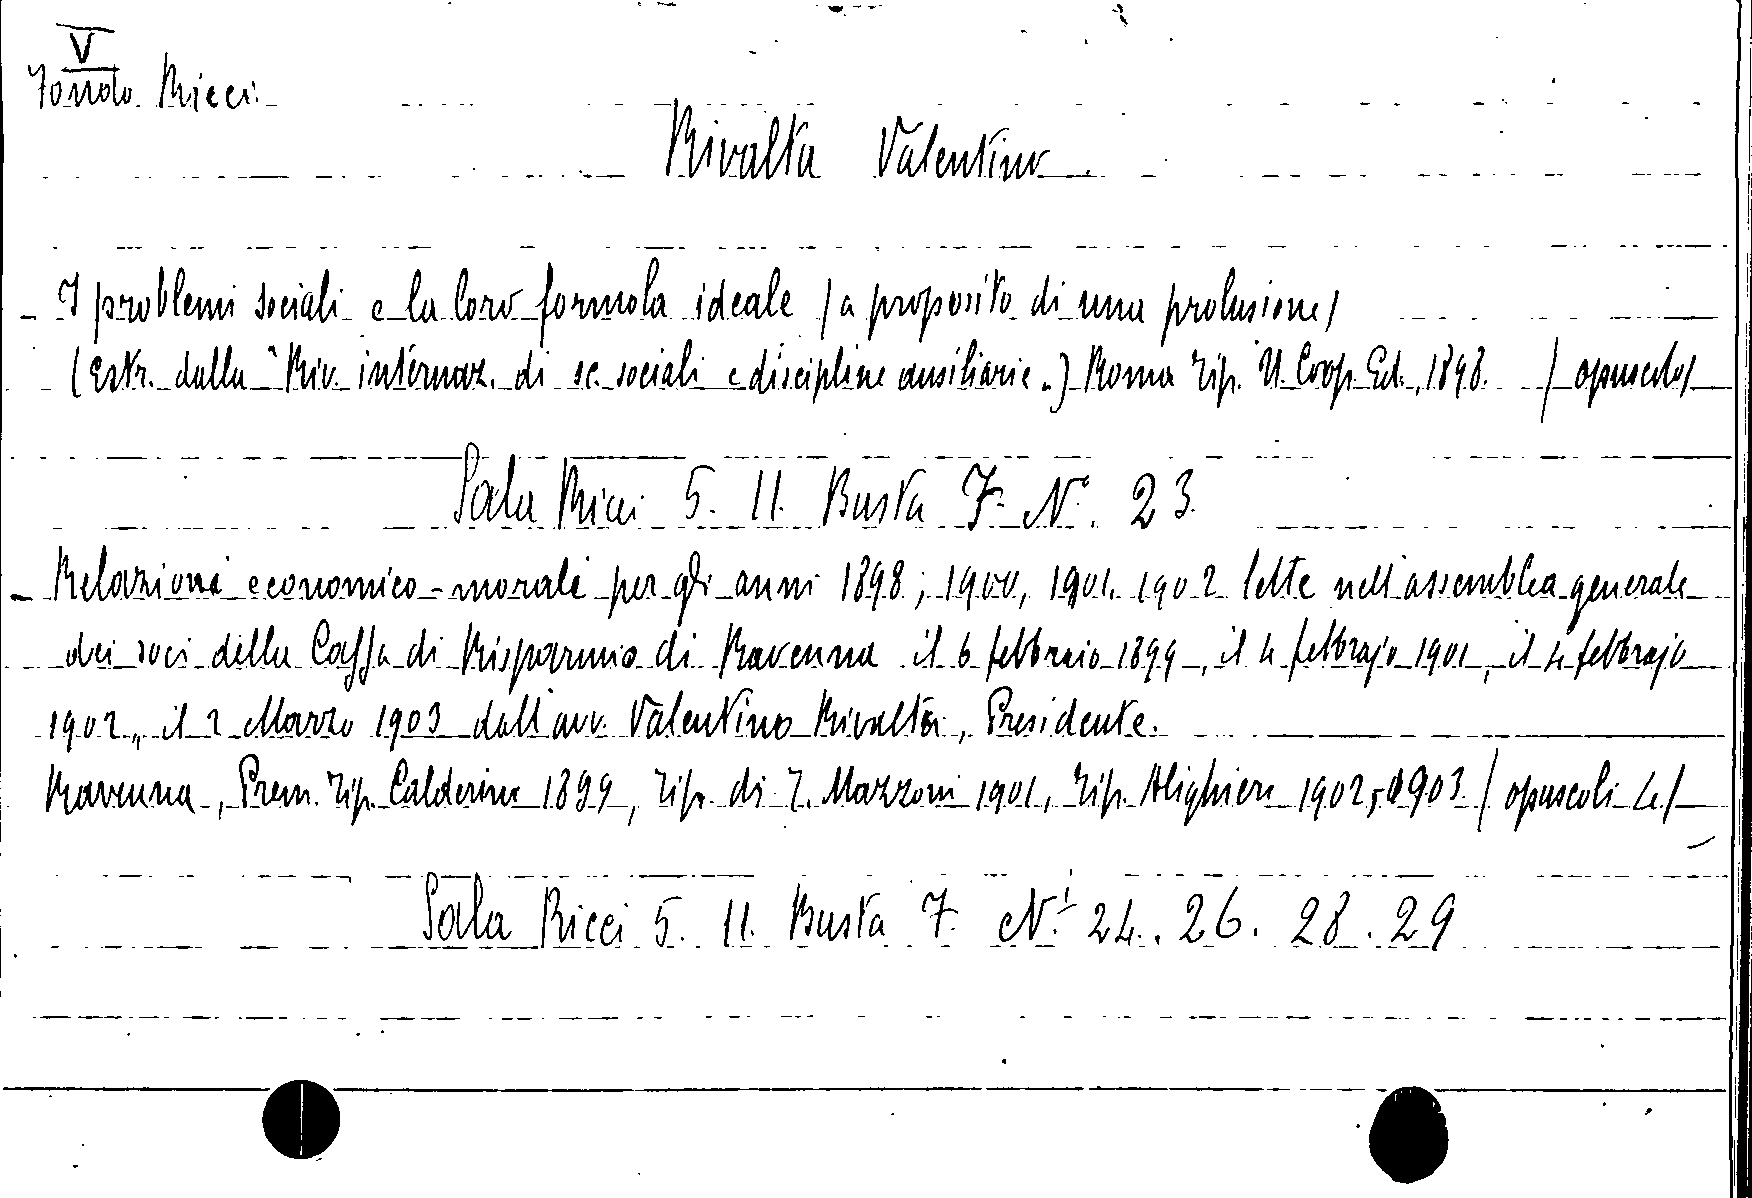 V
Fondo Ricci.
Rivalta Valentino
- I problemi sociali e la loro formola ideale / a proposito di una prolusione /
(Estr. dalla "Riv. internaz. di sc. sociali e discipline ausiliarie.) Roma Tip. U. Coop. Ed., 1898. / opuscolo /
Sala Ricci 5. 11. Busta 7 N.° 23.
- Relazioni economico-morali per gli anni 1898; 1900, 1901. 1902 lette nell'assemblea generale
dei soci della Cassa di Risparmio di Ravenna il 6 febbraio 1899, il 4 febbrajo 1901, il 4 febbrajo
1902, il 2 Marzo 1903 dall'avv. Valentino Rivalta, Presidente.
Ravenna, Prem. Tip. Calderini 1899, Tip. di T. Mazzoni 1901, Tip. Alighieri 1902, 1903. / opuscoli 4 /
Sala Ricci 5. 11. Busta 7. N.i 24. 26. 28. 29